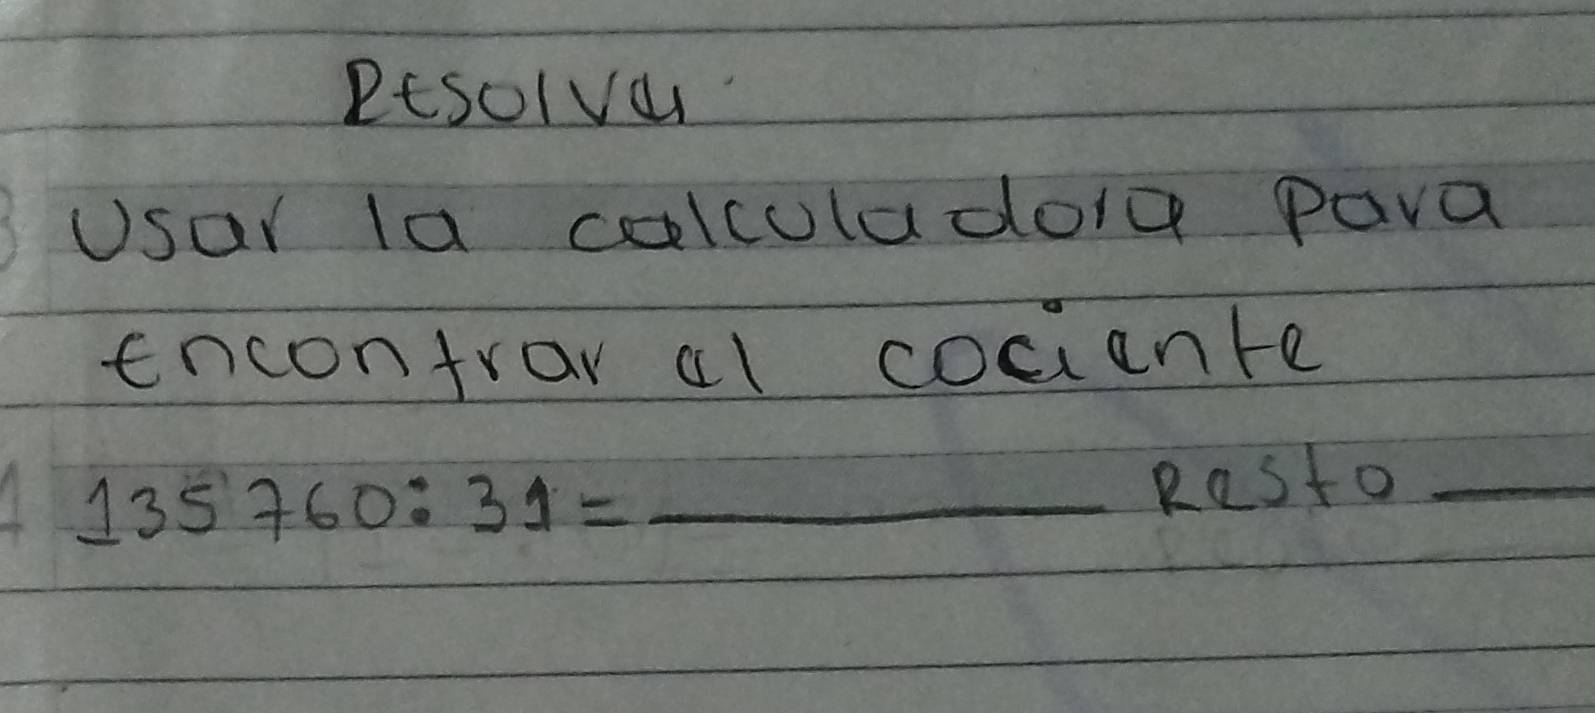 Resolver
Usar la calculadora para
encontrar el cociente
135760:31=________ Resto ____